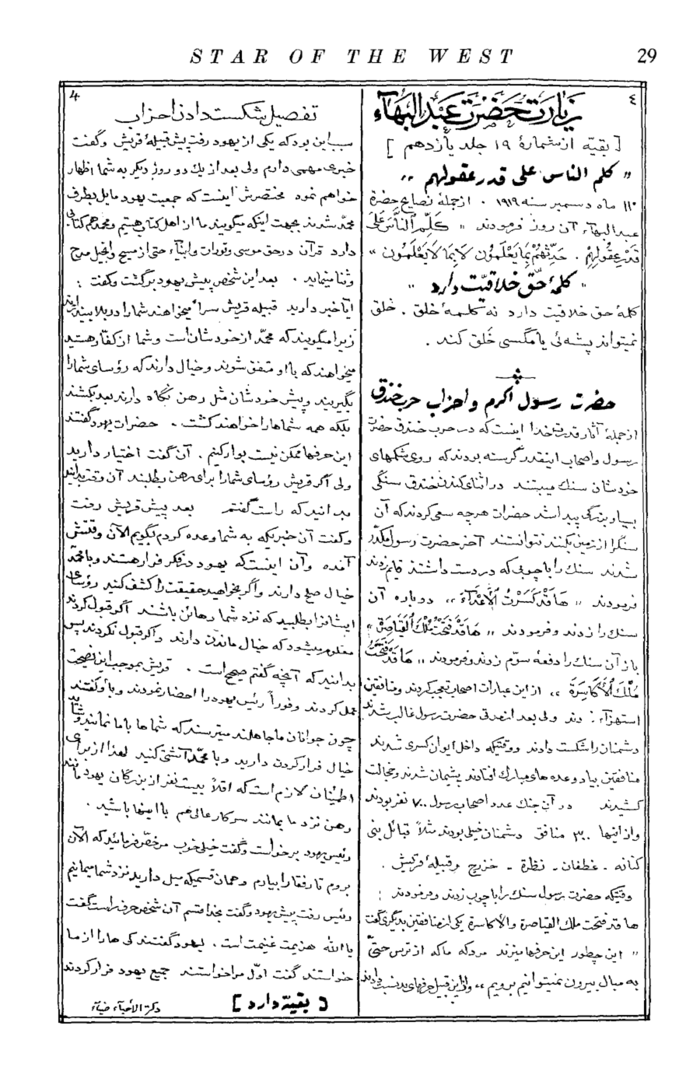 STAR OF THE WEST
29
٤
زیارت حضرت عبد البهآء
[ بقیّه از شمارهٔ ۱۹ جلد یازدهم ]
" کلم الناس علی قدر عقولهم "
۱۱ ماه دسمبر سنه ۱۹۱۹ . از جملهٔ نصایح حضرة
عبدالبهآء آن روز فرمودند " کَلِّمِ النَّاسَ عَلَی
قَدْرِ عُقُولِهِمْ . حَدِّثْهُمْ بِمَا یَعْلَمُونَ لَا بِمَا لَا یَعْلَمُونَ "
" کلمهٔ حق خلاقیّت دارد "
کلمهٔ حق خلاقیت دارد نه کلمهٔ خلق . خلق
نمیتواند پشه ئی یا مگسی خلق کند .
حضرت رسول اکرم و احزاب حرب خندق
از جملهٔ آثار قدرت خدا اینست که در حرب خندق حضرت
رسول و اصحاب اینقدر گرسنه بودند که روی شکمهای
خودشان سنگ میبستند در اثنای کندن خندق سنگی
بسیار بزرگ پیدا شد حضرات هرچه سعی کردند که آن
سنگ را از زمین بکنند نتوانستند آخر حضرت رسول مکدّر
شدند سنگ را با چوبی که در دست داشتند قایم زدند
فرمودند " هَا قَدْ کَسَرْتُ الْأَعْدَآءَ " دوباره آن
سنگ را زدند و فرمودند " هَا قَدْ فَتَحْتُ مُلْکَ الْقَیَاصِرَةِ "
باز آن سنگ را دفعهٔ سوّم زدند و فرمودند " هَا قَدْ فَتَحْتُ
مُلْکَ الْأَکَاسِرَةِ " از این عبارات اصحاب تعجب کردند و منافقین
استهزآء زدند ولی بعد از مدتی حضرت رسول غالب شدند
دشمنان را شکست دادند و وقتیکه داخل ایوان کسری شدند
منافقین بیاد وعده های مبارک افتادند پشیمان شدند و خجالت
کشیدند در آن جنگ عدد اصحاب رسول ۷۰۰ نفر بودند
و از اینها ۳۰۰ منافق دشمنان خیلی بودند مثلاً قبائل بنی
کنانه - غطفان - نظرة - خزرج و قبیلهٔ قریش .
وقتیکه حضرت رسول سنگ را با چوب زدند و فرمودند :
ها قد فتحت ملک القیاصرة و الاکاسرة یکی از منافقین بدیگری گفت
" این چطور این حرفها میزند مردکه ما که از ترس حتّی
به مبال بیرون نمیتوانیم برویم " و از این قبیل حرفهای بد نسبت دادند
۴
تفصیل شکست دادن احزاب
سبب این بود که یکی از یهود رفت پیش قبیلهٔ قریش و گفت
خبری مهمی دارم ولی بعد از یک دو روز دیگر به شما اظهار
خواهم نمود مختصرش اینست که جمعیت یهود مایل بطرف
محمد شدند بجهت اینکه میگویند ما از اهل کتاب هستیم و محمد هم کتابی
دارد قرآن در حق موسی و تورات و انبیآء حتی از مسیح و انجیل مدح
و ثنا مینماید . بعد این شخص پیش یهود برگشت و گفت :
آیا خبر دارید قبیله قریش سراً میخواهند شما را در بلا بیندازند
زیرا میگویند که محمد از خودشان است و شما از کفار هستید
میخواهند که با او متفق شوند و خیال دارند که رؤسای شما را
بگیرند و پیش خودشان مثل رهن نگاه دارند بعد بکشند
بلکه همه شماها را خواهند کشت . حضرات یهود گفتند
این حرفها ممکن نیست بوار کنیم . آن گفت اختیار دارید
ولی اگر قریش رؤسای شما را برای رهن بطلبند آن وقت
بدانید که راست گفتم بعد پیش قریش رفت
و گفت آن خبریکه به شما وعده کردم بگویم الآن وقتش
آمده و آن اینست که یهود در فکر فرار هستند و با محمد
خیال صلح دارند و اگر بخواهید حقیقت را کشف کنید رؤسای
ایشانرا بطلبید که نزد شما رهائن باشند اگر قبول کردند
معلوم میشود که خیال ماندن دارند و اگر قبول نکردند پس
بدانید که آنچه گفتم صحیح است . قریش بموجب این نصیحت
عمل کردند و فوراً رئیس یهود را احضار نمودند و باو گفتند
چون جوانان ما جاهلند میترسند که شما ها با ما نمانید و شاید
خیال فرار کردن دارید و با محمد آشتی کنید لهذا از برای
اطمینان لازم است که اقلاً بیست نفر از بزرگان یهود مانند
رهن نزد ما بمانند سرکار عالی هم با اینها باشید .
رئیس یهود برخواست و گفت خیلی خوب مرخص فرمائید که الآن
بروم تا رفقا را بیارم و همان قسمیکه میل دارید نزد شما میمانیم
رئیس رفت پیش یهود و گفت بخدا قسم آن شخص حرف راست گفت
یا الله هزیمت غنیمت است . یهود گفتند کی ها را از ما
خواستند گفت اوّل مرا خواستند جمیع یهود فرار کردند
[ بقیّه دارد ]
دکتر ضیآء